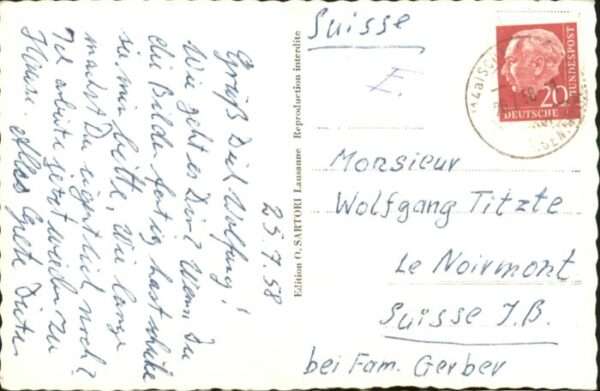 25.7.58
Grüß Dich Wolfang!
Wie geht es Dir? Wenn Du
die Bilder fertig hast schicke
sie mir bitte, Wie lange
machst Du eigentlich noch?
Ich arbeite jetzt weiter zu
Hause. Alles Gute Dieter
Edition O. SARTORI Lausanne Reproduction interdite
Suisse
E.
20
DEUTSCHE
BUNDESPOST
Monsieur
Wolfgang Titzte
Le Noirmont
Suisse J.B.
bei Fam. Gerber